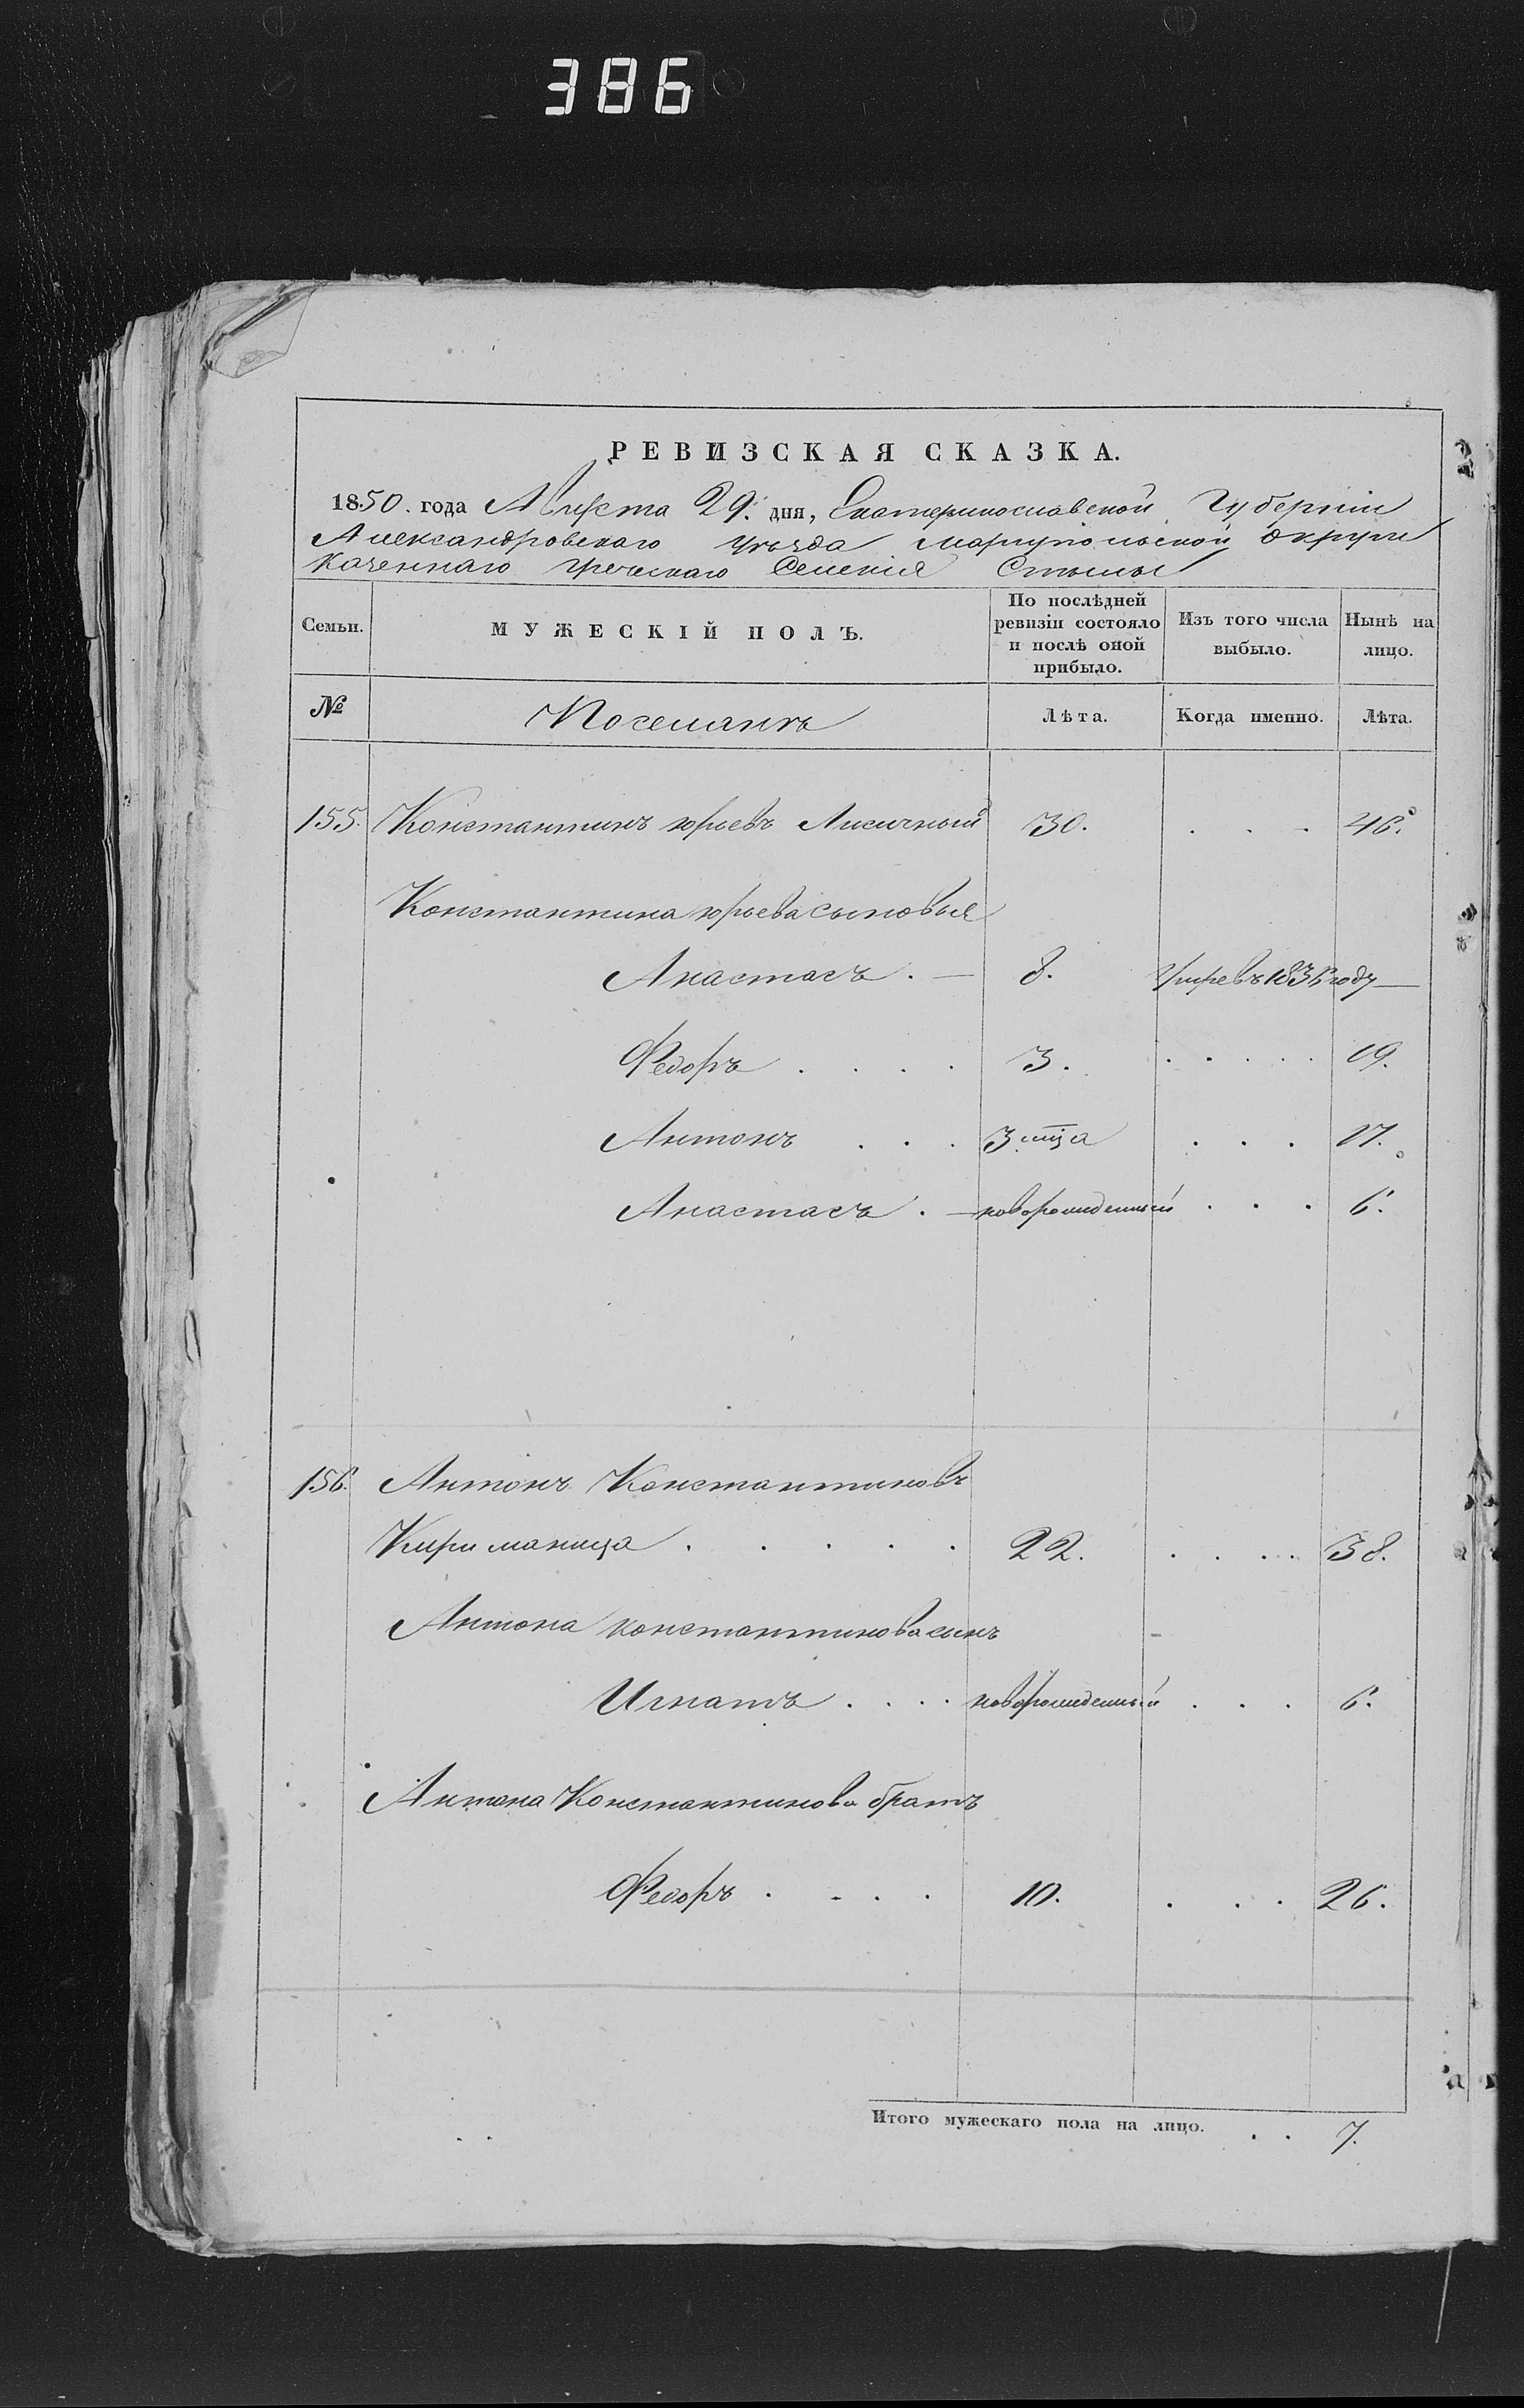 386
РЕВИЗСКАЯ СКАЗКА.
1850. года Августа 29. дня, Екатеринославской Губерніи
Александровскаго Уѣзда Маріупольской округи
Казеннаго греческаго Селенія Стылы
Семьи. МУЖЕСКІЙ ПОЛЪ. По послѣдней ревизіи состояло и послѣ оной прибыло. Изъ того числа выбыло. Нынѣ на лицо.
№ Поселянъ Лѣта. Когда именно. Лѣта.
155. Константинъ юрьевъ Лисичный 30. . . . 46.
Константина юрьева сыновья
Анастасъ . — 8. Умре въ 1836 году —
Федоръ . . . . 3. . . . . . 19.
Антонъ . . . 3 мца . . . 17.
Анастасъ . — новорожденный . . . 6.
156. Антонъ Константиновъ
Кириманица . . . . . 22. . . . . 38.
Антона константинова сынъ
Игнатъ . . . . новорожденный . . . 6.
Антона Константинова братъ
Федоръ . . . . 10. . . . 26.
Итого мужескаго пола на лицо. . . 7.